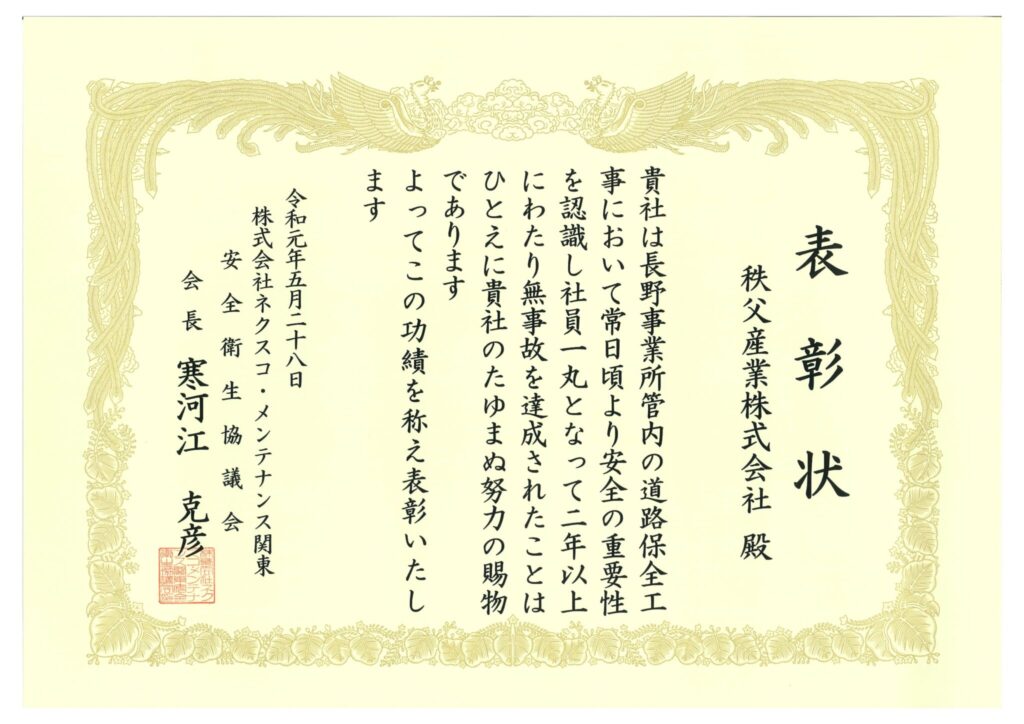 表彰状
秩父産業株式会社 殿
貴社は長野事業所管内の道路保全工
事において常日頃より安全の重要性
を認識し社員一丸となって二年以上
にわたり無事故を達成されたことは
ひとえに貴社のたゆまぬ努力の賜物
であります
よってこの功績を称え表彰いたし
ます
令和元年五月二十八日
株式会社ネクスコ・メンテナンス関東
安全衛生協議会
会長 寒河江 克彦